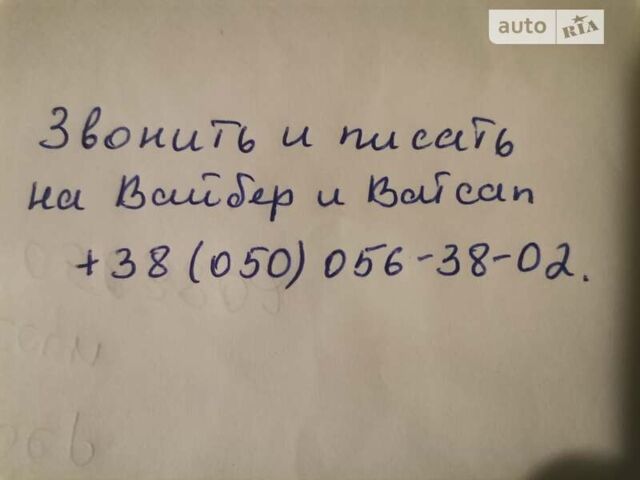 auto RIA
Звонить и писать
на Вайбер и Ватсап
+38 (050) 056-38-02.